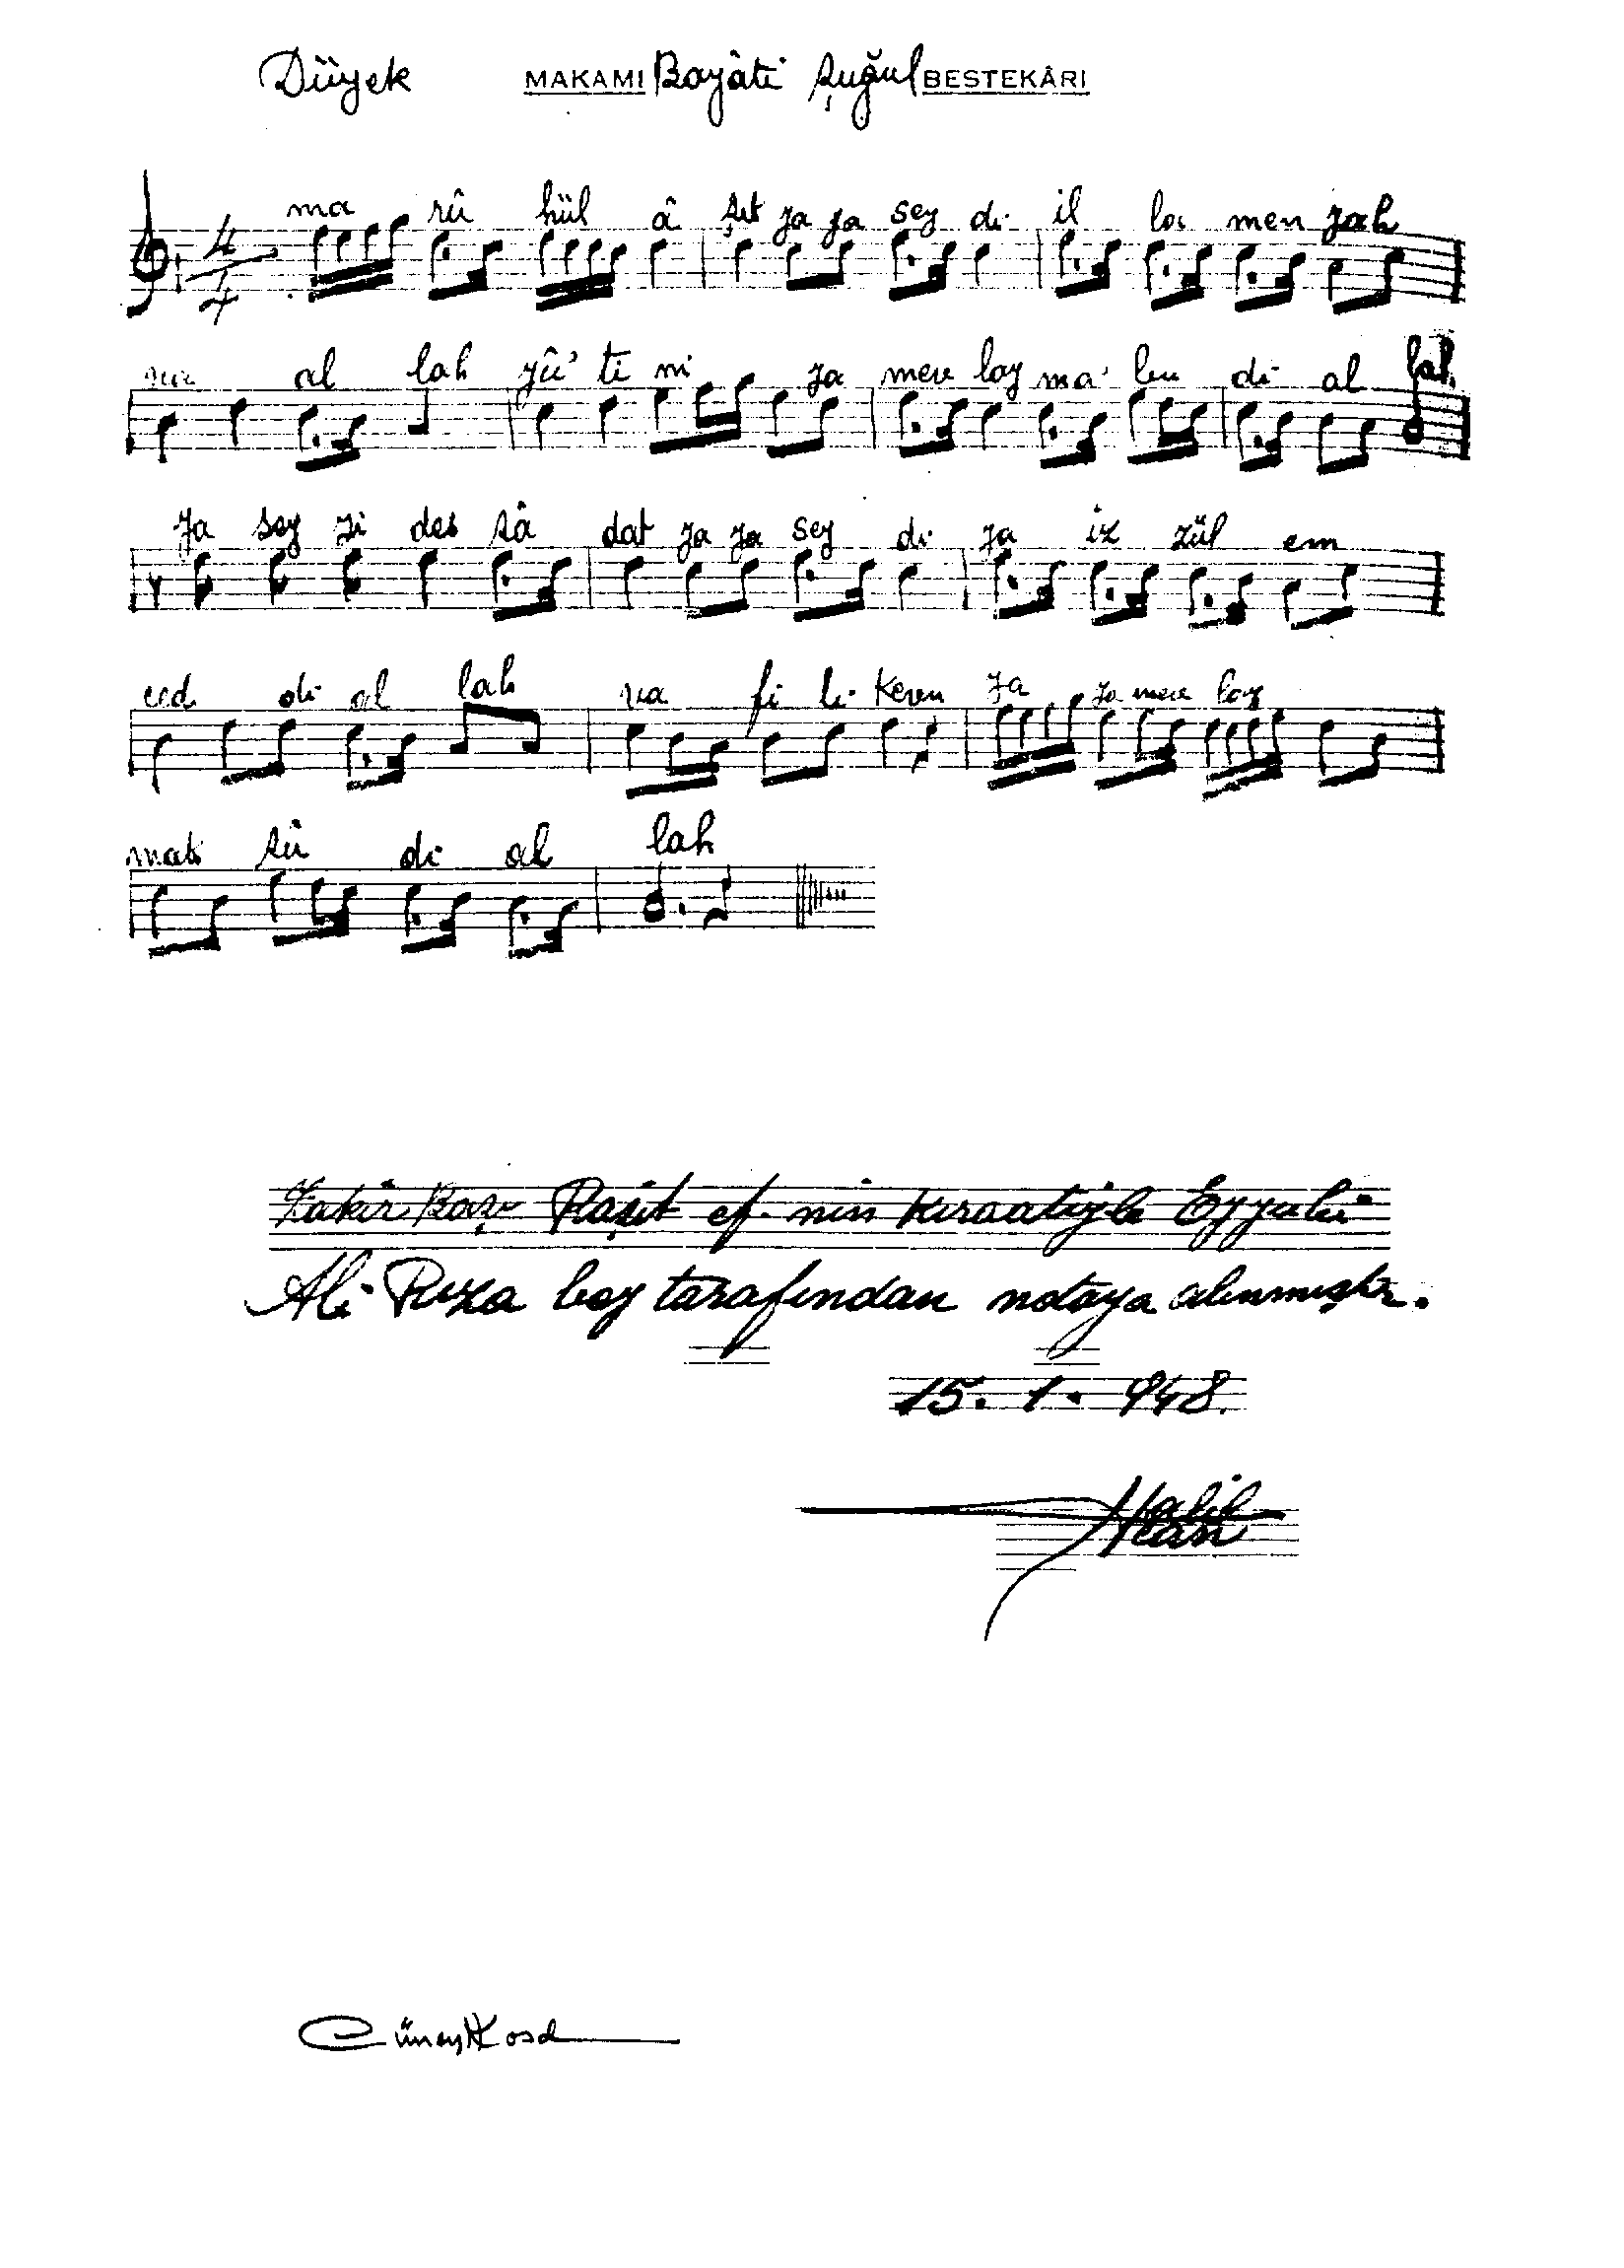 Düyek MAKAMI Bayâti Şuğul BESTEKÂRI
4/4 ma rû hül â şıt ya ya sey di il la men yah
al lah yû' ti ni ya mev lay ma' bu di al lah
Ya sey yi des sâ dat ya ya sey di ya iz zül em
ced di al lah va fi li keven ya ya mev lay
mak sû di al lah
Zakir Başı Raşit ef. nin kıraatiyle Eyyubi
Ali Rıza bey tarafından notaya alınmıştır.
15. 1. 948.
Halil Can
Cüneyt Kosal